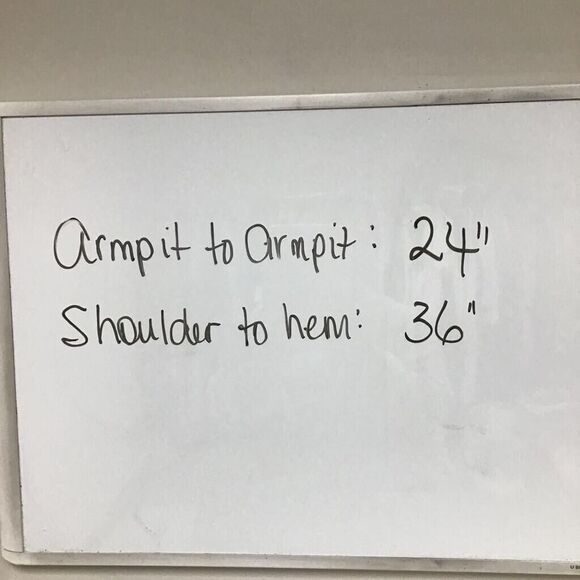 Armpit to Armpit: 24"
Shoulder to hem: 36"